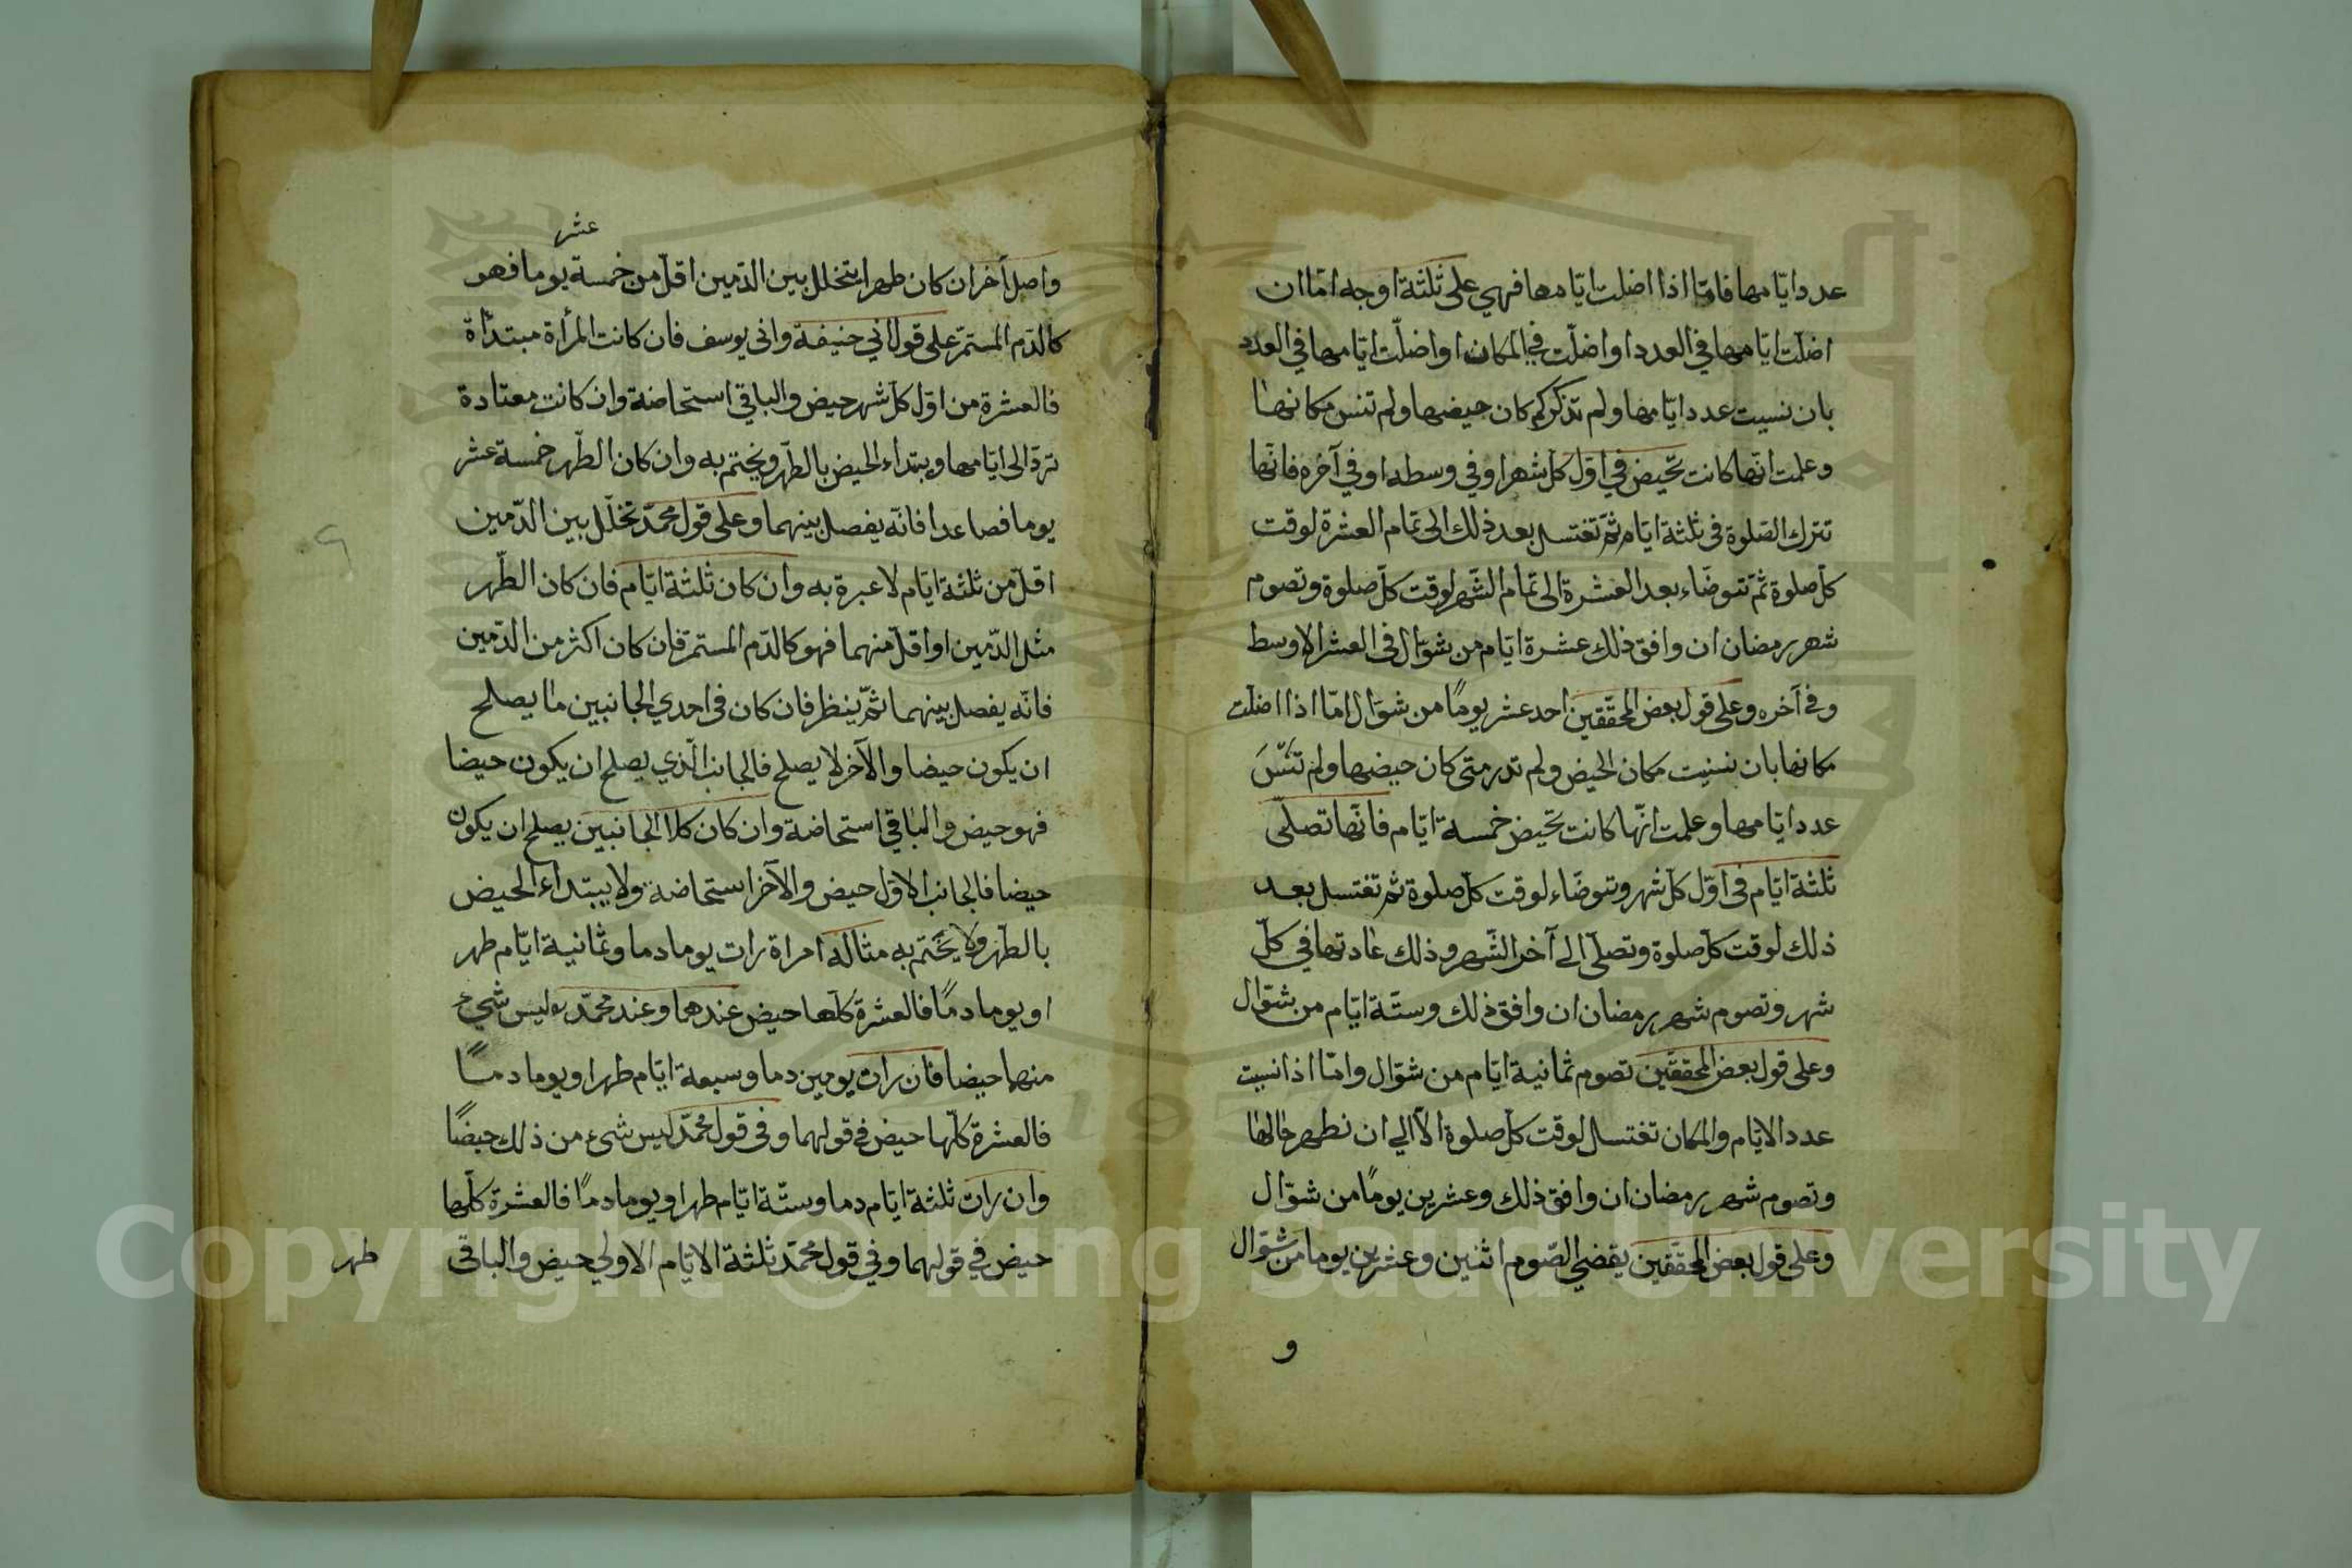 عدد ايّامها فامّا اذا اضلت ايّامها فهي على ثلثة اوجه امّا ان
اضلّت ايّامها في العدد او اضلّت في المكان او اضلّت ايّامها في العدد
بان نسيت عدد ايّامها ولم تذكر كم كان حيضها ولم تنس مكانها
وعلمت انّها كانت تحيض في اوّل كل شهر او في وسطه او في آخره فانّها
تترك الصّلوة في ثلثة ايّام ثمّ تغتسل بعد ذلك الى تمام العشرة لوقت
كلّ صلوة ثمّ تتوضّاء بعد العشرة الى تمام الشّهر لوقت كلّ صلوة وتصوم
شهر رمضان ان وافق ذلك عشرة ايّام من شوّال في العشر الاوسط
وفي آخره وعلى قول بعض المحقّقين احد عشر يومًا من شوّال امّا اذا اضلّت
مكانها بان نسيت مكان الحيض ولم تدر متى كان حيضها ولم تنس
عدد ايّامها وعلمت انّها كانت تحيض خمسة ايّام فانّها تصلّى
ثلثة ايّام في اوّل كلّ شهر وتتوضّاء لوقت كلّ صلوة ثمّ تغتسل بعد
ذلك لوقت كلّ صلوة وتصلّي الى آخر الشّهر وذلك عادتها في كلّ
شهر وتصوم شهر رمضان ان وافق ذلك وستّة ايّام من شوّال
وعلى قول بعض المحققين تصوم ثمانية ايّام من شوّال وامّا اذا نسيت
عدد الايّام والمكان تغتسل لوقت كلّ صلوة الا الي ان تطهر حالها
وتصوم شهر رمضان ان وافق ذلك وعشرين يومًا من شوّال
وعلى قول بعض المحقّقين يقضي الصّوم اثنين وعشرين يوما من شوّال
و
عشر
واصل آخر ان كان طهرا يتخلل بين الدّمين اقلّ من خمسة يوما فهو
كالدّم المستمرّ على قول ابي حنيفة وابي يوسف فان كانت المرأة مبتدأة
فالعشرة من اوّل كلّ شهر حيض والباقي استحاضة وان كانت معتادة
تردّ الى ايّامها ويبتداء الحيض بالطّهر ويختم به وان كان الطّهر خمسة عشر
يوما فصاعدا فانّه يفصل بينهما وعلى قول محمّد تخلّل بين الدّمين
اقلّ من ثلثة ايّام لا عبرة به وان كان ثلثة ايّام فان كان الطّهر
مثل الدّمين او اقلّ منهما فهو كالدّم المستمرّ فان كان اكثر من الدّمين
فانّه يفصل بينهما ثمّ ينظر فان كان في احدي الجانبين ما يصلح
ان يكون حيضا والآخر لا يصلح فالجانب الّذي يصلح ان يكون حيضا
فهو حيض والباقي استحاضة وان كان كلا الجانبين يصلح ان يكون
حيضا فالجانب الاوّل حيض والآخر استحاضة ولا يبتداء الحيض
بالطّهر ولا يختم به مثاله امراة رات يوما دما وثمانية ايّام طهر
او يوما دمًا فالعشرة كلّها حيض عندهما وعند محمّد ليس شيء
منها حيضا فان رات يومين دما وسبعة ايّام طهرا ويوما دمًا
فالعشرة كلّها حيض في قولهما وفي قول محمّد ليس شيء من ذلك حيضًا
وان رات ثلثة ايّام دما وستّة ايّام طهرا ويوما دمًا فالعشرة كلّها
حيض في قولهما وفي قول محمّد ثلثة الايّام الاولي حيض والباقي
طهر